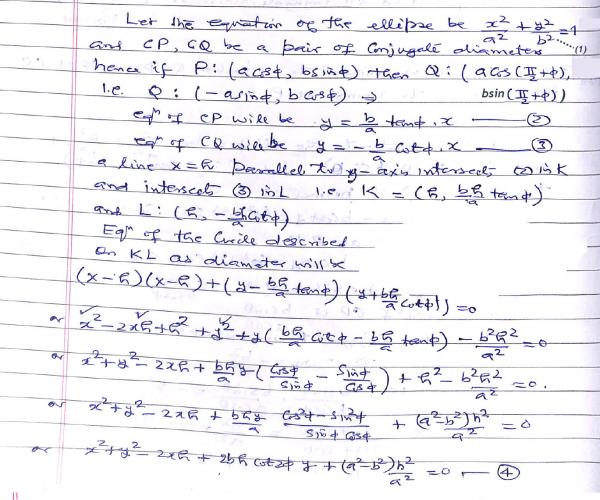 Let the equation of the ellipse be x²/a² + y²/b² = 1 ......(1)
and CP, CQ be a pair of Conjugate diameters
hence if P: (a cosϕ, b sinϕ) then Q: (a cos(π/2+ϕ), b sin(π/2+ϕ))
i.e. Q: (-a sinϕ, b cosϕ) ⇒
eqⁿ of CP will be y = b/a tanϕ . x —— (2)
eqⁿ of CQ will be y = - b/a cotϕ . x —— (3)
a line x=h parallel to y-axis intersects (2) in K
and intersects (3) in L i.e. K = (h, bh/a tanϕ)
and L: (h, - bh/a cotϕ)
Eqⁿ of the Circle described
on KL as diameter will be
(x-h)(x-h) + (y - bh/a tanϕ)(y + bh/a cotϕ) = 0
or x² - 2xh + h² + y² + y(bh/a cotϕ - bh/a tanϕ) - b²h²/a² = 0
or x² + y² - 2xh + bh/a y (cosϕ/sinϕ - sinϕ/cosϕ) + h² - b²h²/a² = 0.
or x² + y² - 2xh + bhy/a cos²ϕ - sin²ϕ/sinϕ cosϕ + (a²-b²)h²/a² = 0
or x² + y² - 2xh + 2bh cot2ϕ y + (a²-b²)h²/a² = 0 — (4)
11